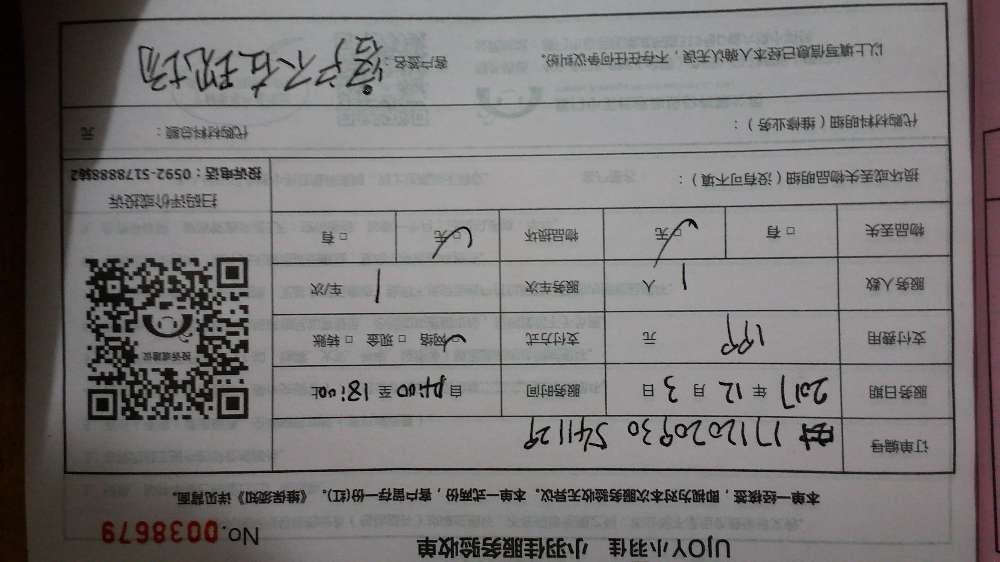 UJOY小羽佳 小羽佳服务验收单
No.0038679
本单一经核签，即视为对本次服务验收无异议。本单一式两份，客户留存一份(红)。《维保须知》详见背面。
订单编号 1712020930 541129
服务日期 2017 年 12 月 3 日 服务时间 自 14:00 至 18:00止
支付费用 199 元 支付方式 网络 □ 现金 □ 转账
服务人数 1 人 服务车次 1 车/次
物品丢失 □ 有 □ 无 物品损坏 □ 无 □ 有
投诉或建议
扫码评价或投诉
投诉电话：0592-5178888转2
损坏或丢失物品明细（没有可不填）：
代购材料明细（维修业务）： 代购材料总额： 元
以上填写信息已经本人确认无误，不存在任何争议纠纷。 客户签名： 客户不在现场